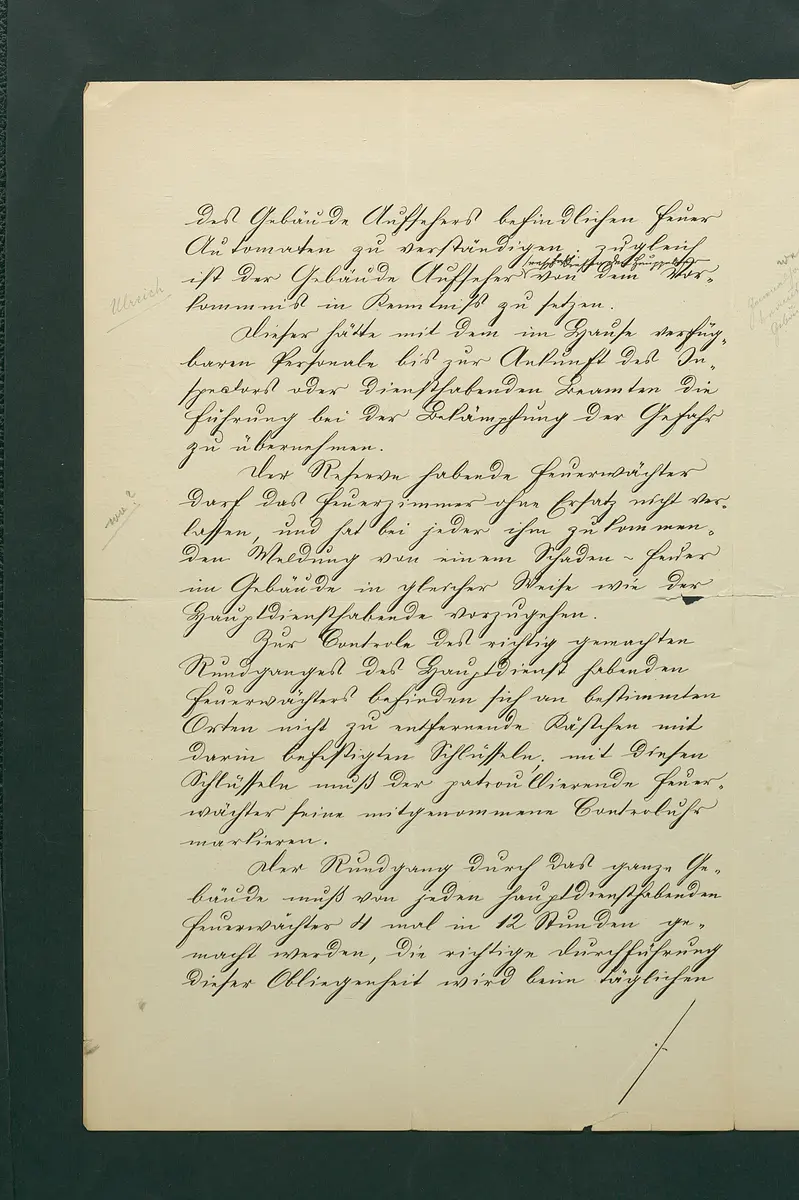 des Gebäude Aufsehers befindlichen Feuer
Automaten zu verständigen. zugleich
ist der Gebäude Aufseher von dem Vor-
kommnis in Kenntniß zu setzen.
Ulreich
Dieser hätte mit dem im Hause verfüg-
baren Personale bis zur Ankunft des In-
spectors oder diensthabenden Beamten die
Führung bei der Bekämpfung der Gefahr
zu übernehmen.
Der Reserve habende Feuerwächter
darf das Feuerzimmer ohne Ersatz nicht ver-
lassen, und hat bei jeder ihm zukommen-
den Meldung von einem Schaden-Feuer
im Gebäude in gleicher Weise wie der
Hauptdiensthabende vorzugehen.
Zur Controle des richtig gemachten
Rundganges des Hauptdienst habenden
Feuerwächters befinden sich an bestimmten
Orten nicht zu entfernende Kästchen mit
darin befestigten Schlüsseln, mit diesen
Schlüsseln muß der patroullierende Feuer-
wächter seine mitgenommene Controluhr
markieren.
Der Rundgang durch das ganze Ge-
bäude muß von jeden hauptdiensthabenden
Feuerwächter 4 mal in 12 Stunden ge-
macht werden, die richtige Durchführung
dieser Obliegenheit wird beim täglichen